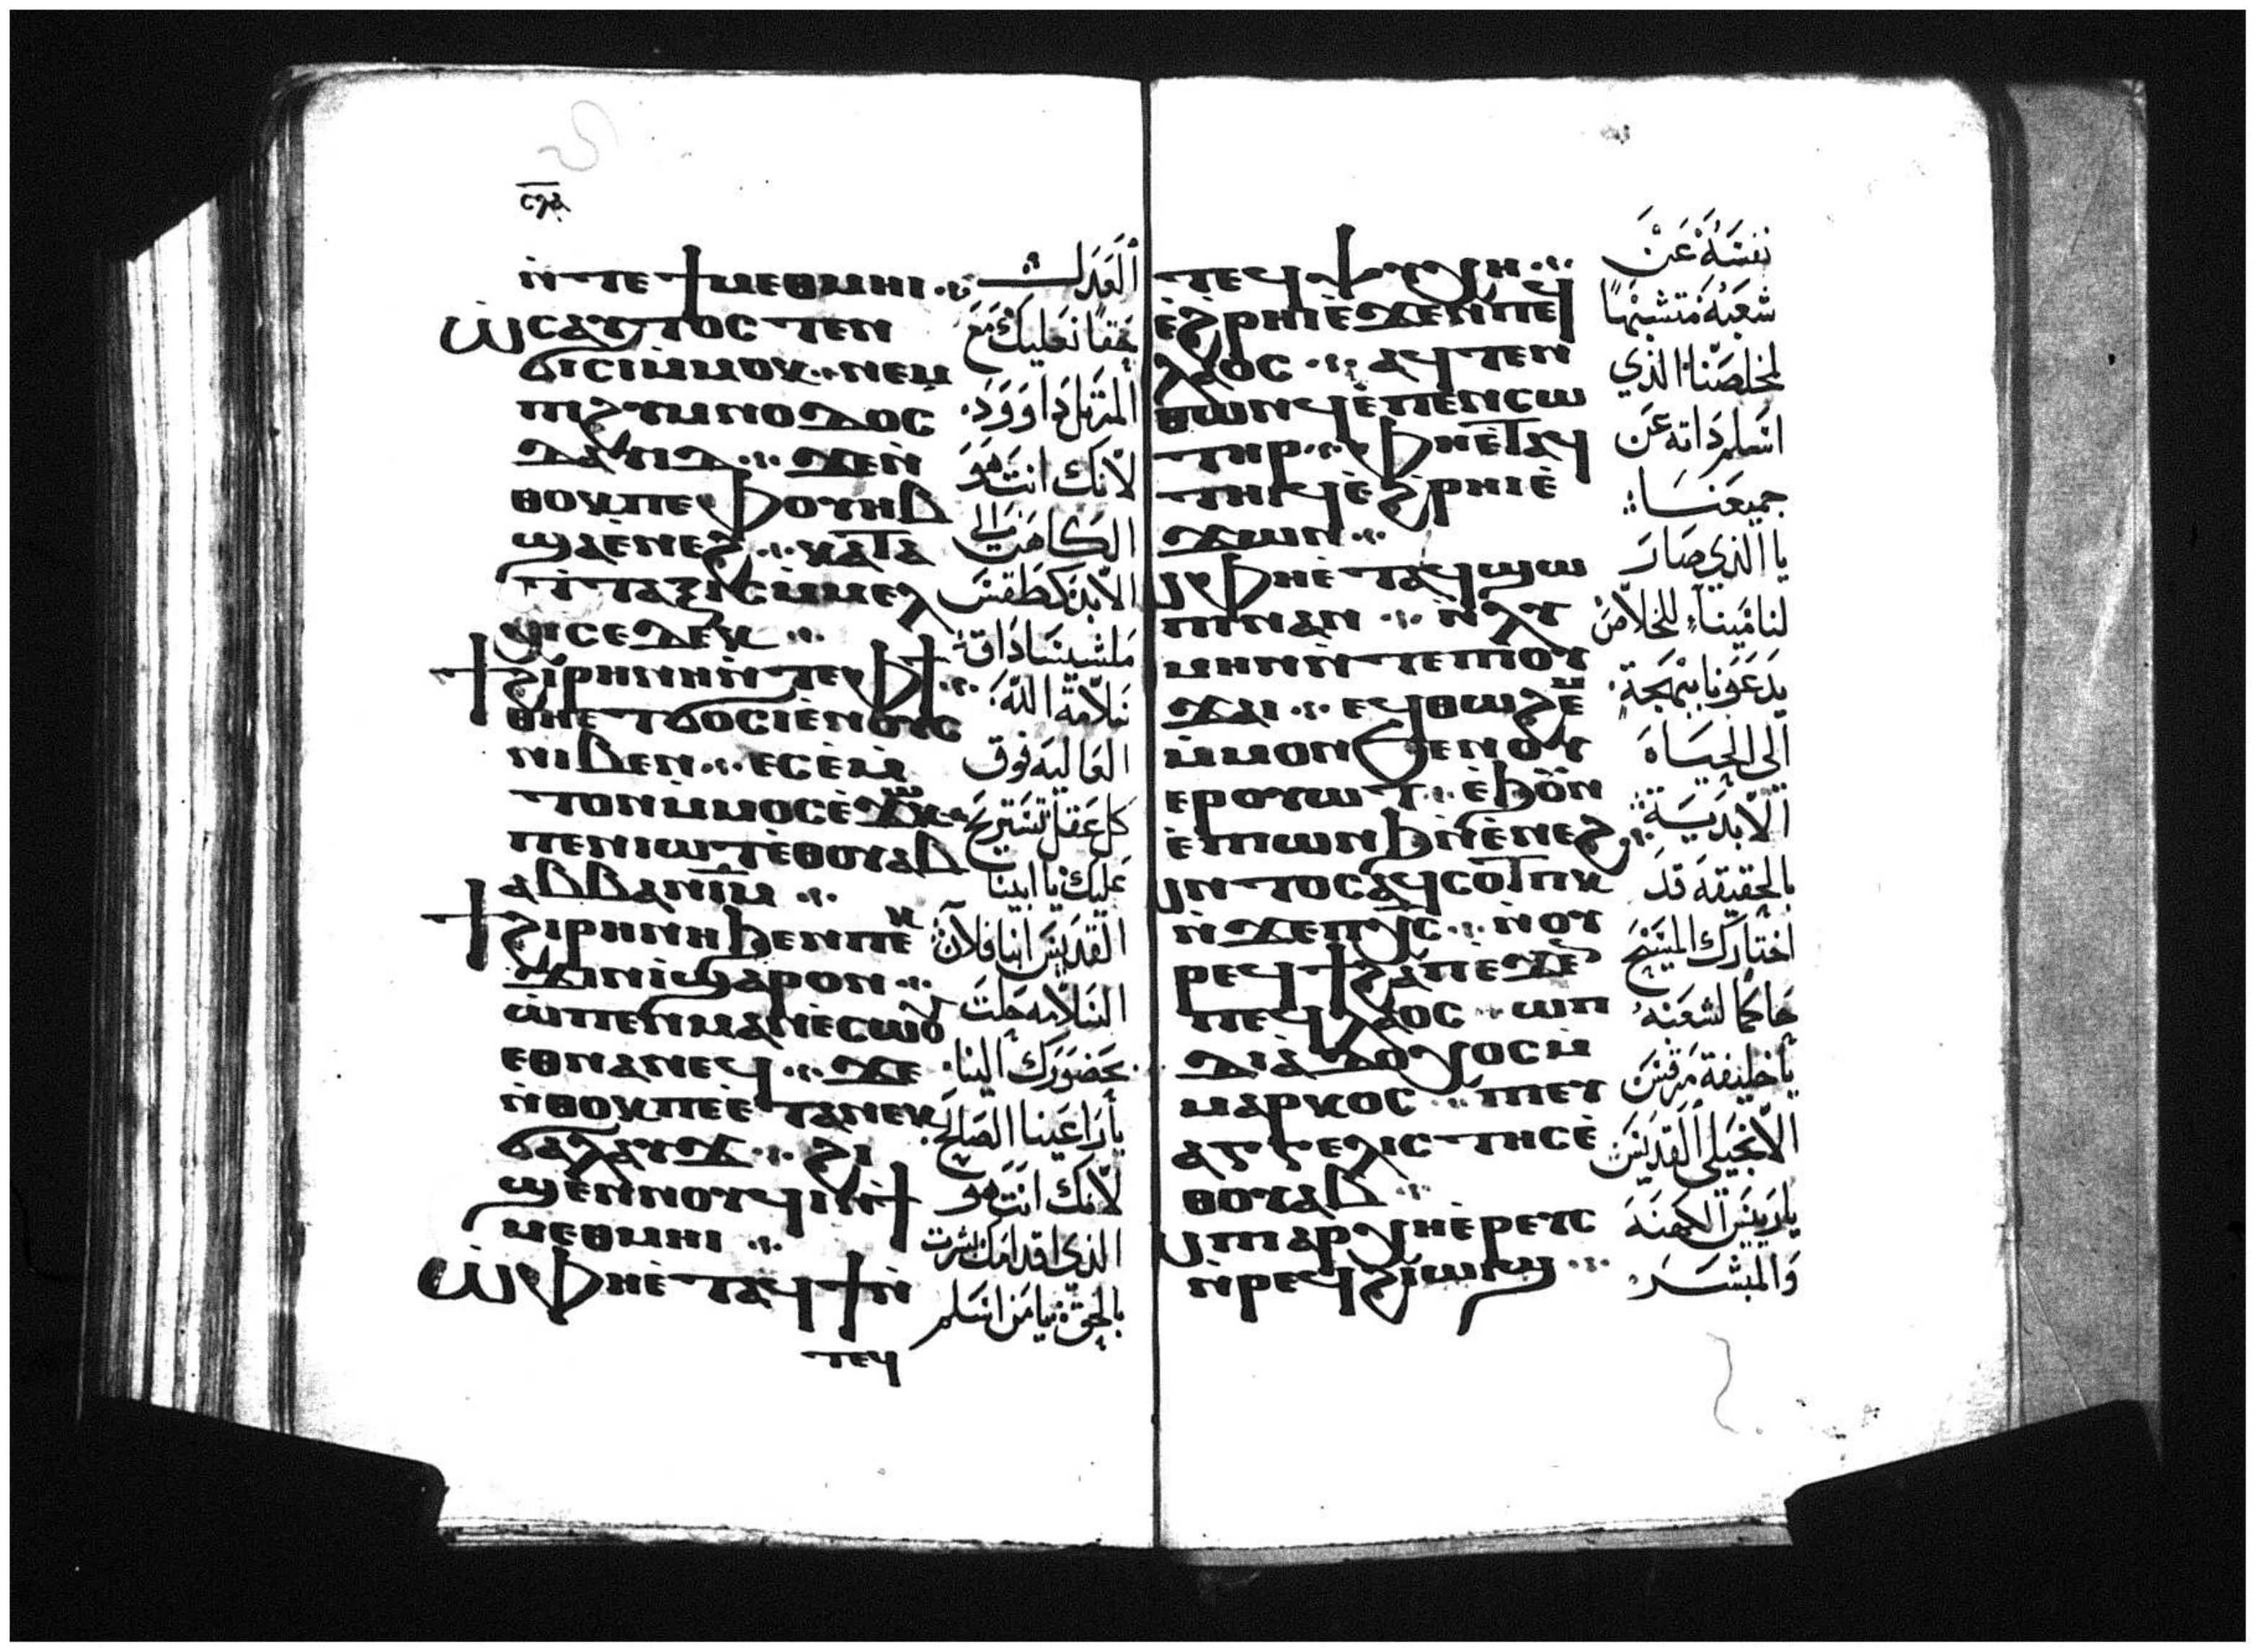 ⲛ̀ⲧⲉϯⲙⲉⲑⲙⲏⲓ
ⲱ̀ⲥⲁⲩⲧⲟⲥ ⲧⲉⲛ
ϭⲓⲥⲓⲙ̀ⲙⲟⲕ ⲛⲉⲙ
ⲡⲓϩⲩⲙⲛⲟⲇⲟⲥ
ⲇⲁⲩⲓⲇ ϫⲉⲛ̀
ⲑⲟⲕⲡⲉⲫⲟⲩⲏⲃ
ϣⲁⲉ̀ⲛⲉϩ ⲕⲁⲧⲁ
ⲧ̀ⲧⲁⲝⲓⲥⲙ̀ⲙⲉⲗ
ⲭⲓⲥⲉⲇⲉⲕ
ϯϩⲓⲣⲏⲛⲏⲛ̀ⲧⲉⲫϯ
ⲑⲏⲉⲧϭⲟⲥⲓⲉ̀ⲛⲟⲩⲥ
ⲛⲓⲃⲉⲛ ⲉⲥⲉ̀ⲙ̀
ⲧⲟⲛⲙ̀ⲙⲟⲥⲉ̀ϫⲱⲕ
ⲡⲉⲛⲓⲱⲧⲉ̀ⲑⲟⲩⲁⲃ
ⲁⲃⲃⲁⲛⲓⲙ
ϯϩⲓⲣⲏⲛⲏϧⲉⲛⲡⲉⲕ
ϫⲓⲛⲓ̀ϣⲁⲣⲟⲛ
ⲱ̀ⲡⲉⲛⲙⲁⲛⲉ̀ⲥⲱⲟⲩ
ⲉⲑⲛⲁⲛⲉϥ ϫⲉ
ⲛ̀ⲑⲟⲕⲡⲉⲉ̀ⲧⲁⲛⲉⲕ
ϭⲁⲗⲁⲩϫ ϩⲓ
ϣⲉⲛⲛⲟⲩϥⲓⲛ̀ϯ
ⲙⲉⲑⲙⲏⲓ
ⲱ̀ⲫⲏⲉ̀ⲧⲁϥϯⲛ̀
ⲧⲉϥ
العدل
حقا نعليك مع
المرتل داوود
لانك انت هو
الكاهن الى
الابد كطقس
ملشيساداق
سلامة الله
العالية فوق
كل عقل تستريح
عليك يا ابينا
القديس انبا فلان
السلامه حلت
بحضورك الينا
يا راعينا الصالح
لانك انت هو
الذي اقدامك
بالحق يا من اسلم
ⲧⲉϥⲯⲩⲭⲏ
ⲉ̀ϩⲣⲏⲓⲉ̀ϫⲉⲛⲡⲉϥ
ⲗⲁⲟⲥ ⲁϥⲧⲉⲛ
ⲑⲱⲛϥⲉⲡⲉⲛⲥⲱ
ⲧⲏⲣ ⲫⲏⲉ̀ⲧⲁϥ
ⲧⲏⲓϥⲉ̀ϩⲣⲏⲓⲉ̀
ϫⲱⲛ
ⲱⲫⲏⲉ̀ⲧⲁϥϣⲱ
ⲡⲓⲛⲁⲛ ⲛ̀ⲗⲩ
ⲙⲏⲛⲛ̀ⲧⲉⲡⲓⲟⲩ
ϫⲁⲓ ⲉϥⲑⲱϩⲉⲙ
ⲙ̀ⲙⲟⲛϧⲉⲛⲟⲩ
ⲉⲣⲟⲩⲱⲧ ⲉ̀ϧⲟⲩⲛ
ⲉ̀ⲡⲓⲱⲛϧⲛ̀ⲉ̀ⲛⲉϩ
ⲱⲛⲧⲟⲥⲁϥⲥⲟⲧⲡⲕ
ⲛ̀ϫⲉⲡⲭⲥ ⲛ̀ⲟⲩ
ⲣⲉϥϯϩⲁⲡⲉϫⲉⲛ
ⲡⲉϥⲗⲁⲟⲥ ⲱⲡⲓ
ⲇⲓⲁⲇⲟⲭⲟⲥⲙ̀
ⲙⲁⲣⲕⲟⲥ ⲡⲓⲉⲩ
ⲁⲅⲅⲉⲗⲓⲥⲧⲏⲥⲉ̀
ⲑⲟⲩⲁⲃ
ⲱⲡⲓⲁⲣⲭⲏⲉ̀ⲣⲉⲩⲥ
ⲛ̀ⲣⲉϥϩⲓⲱⲓϣ
نفسه عن
شعبه متشبها
لمخلصنا الذي
اسلم ذاته عن
جميعنا
يا الذي صار
لنا مينا للخلاص
يدعونا ببهجة
الى الحياه
الابدية
بالحقيقه قد
اختارك المسيح
حاكما لشعبه
يا خليفة مرقس
الانجيلي القديس
يا ريس الكهنه
والمبشر